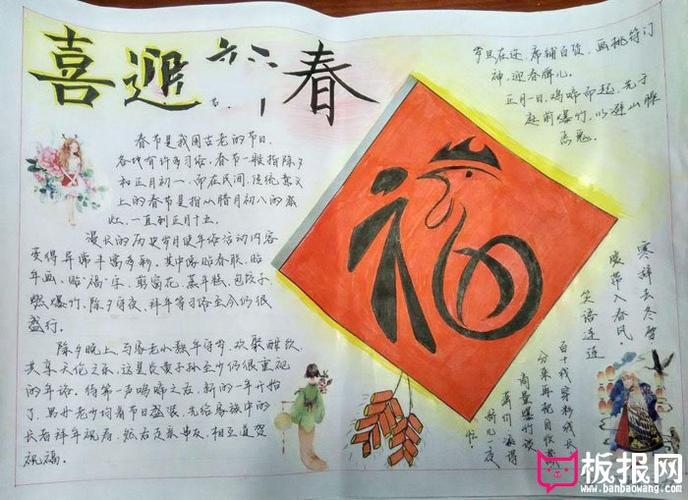 喜迎春
春节是我国古老的节日，
各代有许多习俗，春节一般指除夕
和正月初一，而在民间，传统意义
上的春节是指从腊月初八的
灶，一直到正月十五。
漫长的历史岁月使年俗活动内容
变得异常丰富多彩。其中像贴春联，贴
年画，贴“福”字，剪窗花，蒸年糕，包饺子，
燃爆竹，除夕守夜，拜年等习俗至今仍很
盛行。
除夕晚上，与家老小熬年守岁，欢聚酣饮，
共享天伦之乐，这是炎黄子孙至少仍很重视
的年俗。待第一声鸡啼之后，新的一年开始
了，男女老少均着节日盛装，先给家族中的
长者拜年祝寿，走亲串友，相互道贺
祝福。
岁旦在迩，席铺百货，画桃符门
神，迎春牌儿。
正月一日，鸡鸣而起，先于
庭前爆竹，以避山臊
恶鬼。
福
寒辞去冬雪
暖带入春风。
笑语连连
百十钱穿彩线长
分来再枕自收
商量爆竹谈
箫价添得
娇儿一夜
忙。
板报网
www.banbaowang.com